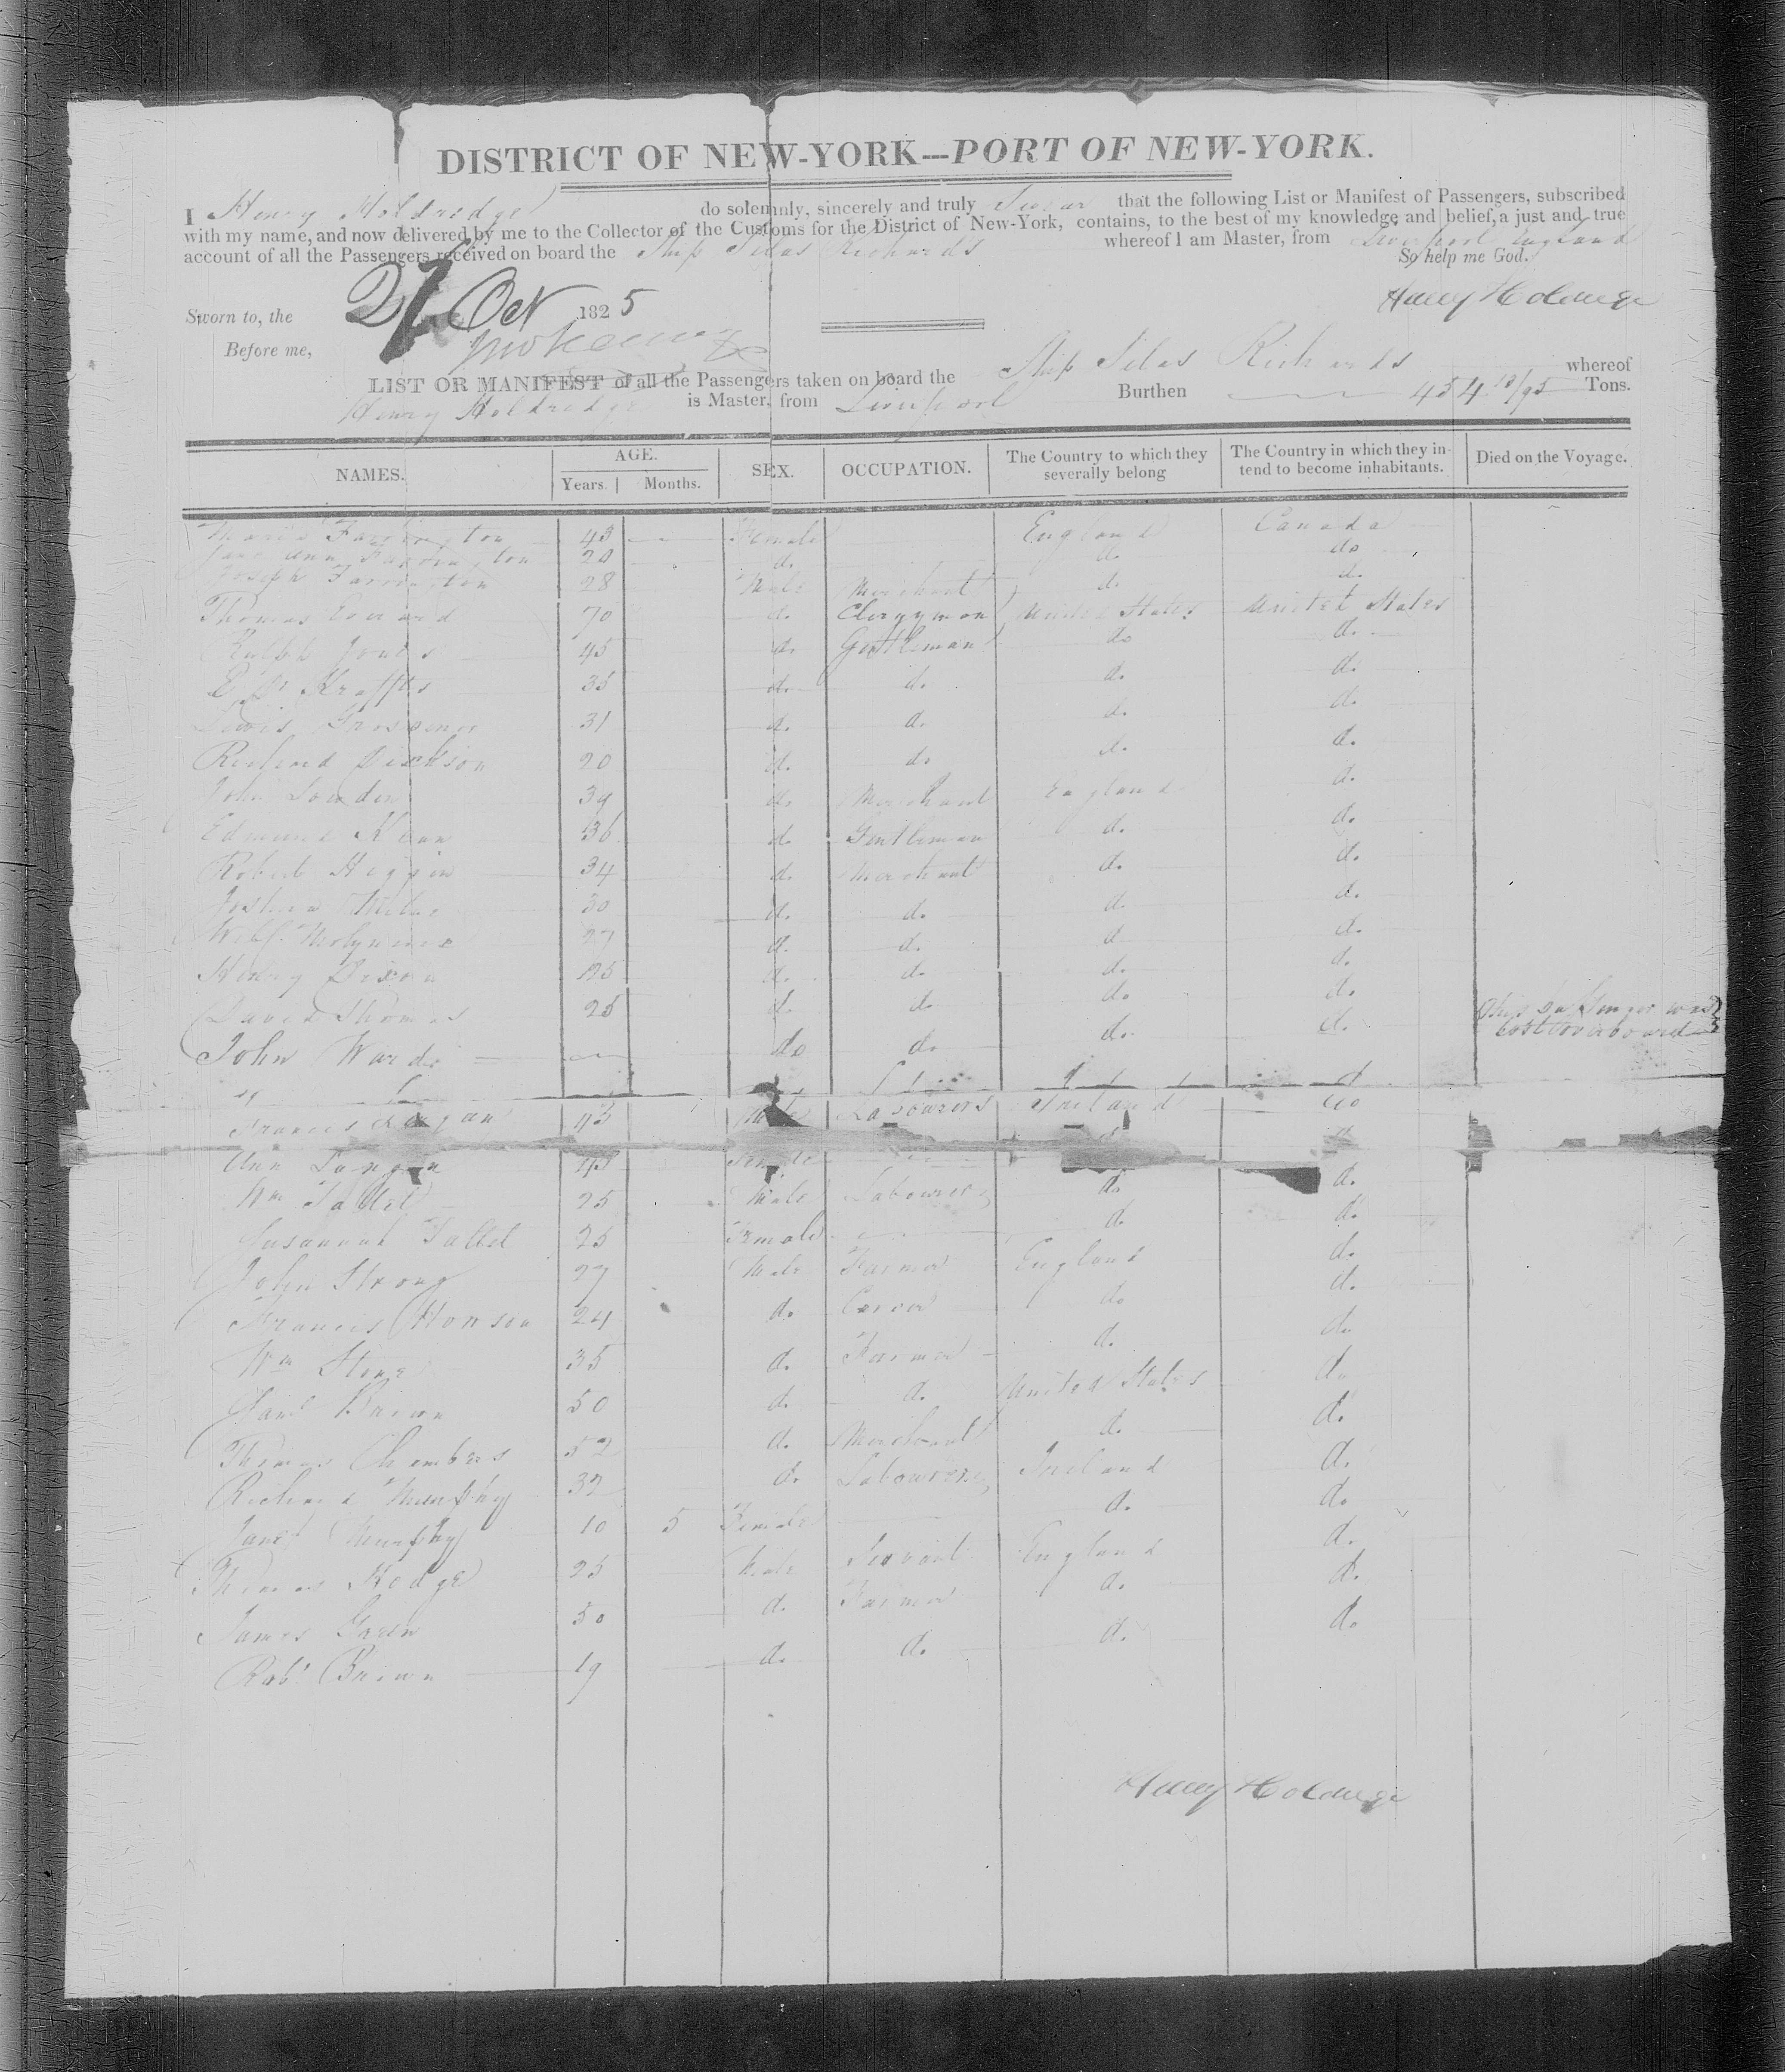 DISTRICT OF NEW-YORK---PORT OF NEW-YORK.
I Henry Holdredge do solemnly, sincerely and truly Swear that the following List or Manifest of Passengers, subscribed
with my name, and now delivered by me to the Collector of the Customs for the District of New-York, contains, to the best of my knowledge and belief, a just and true
account of all the Passengers received on board the Ship Silas Richards whereof I am Master, from Liverpool England
So help me God.
Sworn to, the 27 Oct 1825 Henry Holdredge
Before me,
LIST OR MANIFEST of all the Passengers taken on board the Ship Silas Richards whereof
Henry Holdredge is Master, from Liverpool Burthen 454 Tons.
NAMES. AGE. Years. Months. SEX. OCCUPATION. The Country to which they severally belong The Country in which they intend to become inhabitants. Died on the Voyage.
Maria Farrington 43 Female England Canada
Jane Ann Farrington 20 do do do
Joseph Farrington 28 Male Merchant do do
Thomas 70 do Clergyman United States United States
Ralph Jones 45 do Gentleman do do
Kraffts 35 do do do do
Lewis Grosvenor 31 do do do do
Richard Dickson 20 do do do do
John Lowden 39 do Merchant England do
Edmund Kean 36 do Gentleman do do
Robert Higgin 34 do Merchant do do
Joshua 30 do do do do
Molyneux 27 do do do do
Henry Dixon 25 do do do do
David Thomas 25 do do do do
John Warde do do do do This passenger was lost overboard
Francis Langan 43 Male Labourers Ireland do
Ann Langan Female
Wm Tallet 25 Male Labourer do do
Susannah Tallet 25 Female do do
John Strong 27 Male Farmer England do
Francis 24 do do do
Wm Stone 35 do Farmer do do
Saml Brown 50 do do United States do
Thomas Chambers 52 do Merchant do do
Richard Murphy 32 do Labourer Ireland do
Jane Murphy 10 5 Female do do
Thomas Hodge 25 Male Servant England do
James Green 50 do Farmer do do
Robt Brown 19 do do do do
Henry Holdredge